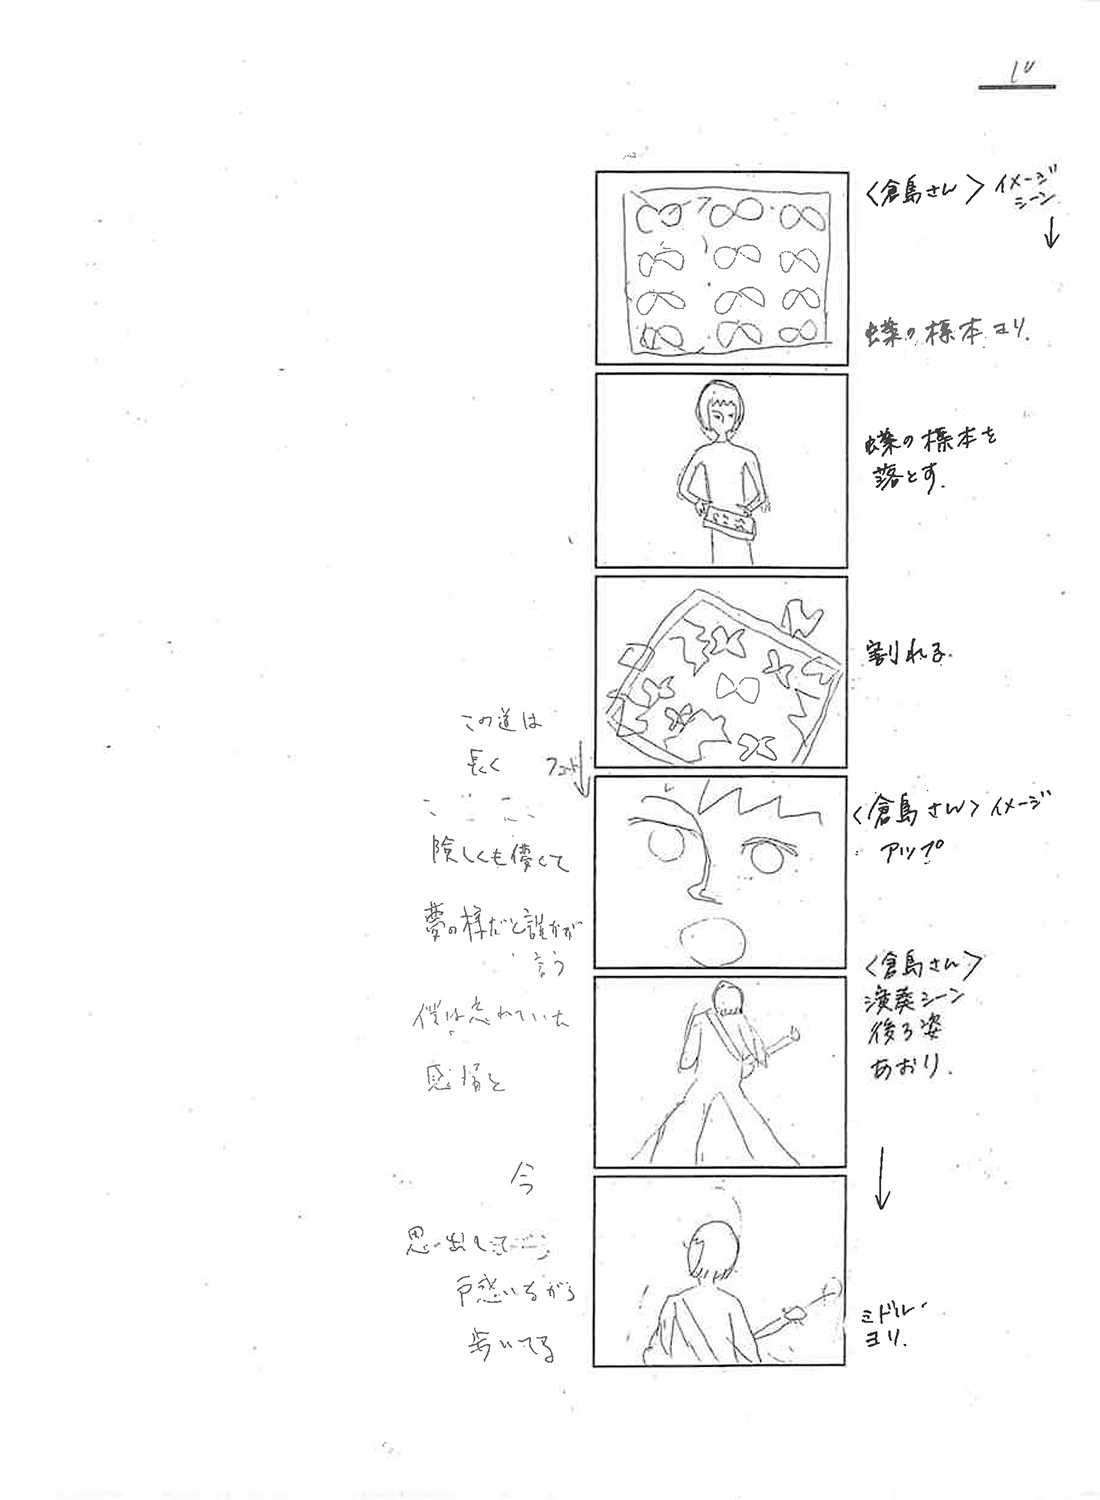 10
〈倉島さん〉イメージ
シーン
蝶の標本ヨリ.
蝶の標本を
落とす.
割れる
この道は
長く
険しくも儚くて
夢の様だと誰かが
言う
僕は忘れていた
感情を
今
思い出して
戸惑いながら
歩いてる
〈倉島さん〉イメージ
アップ
〈倉島さん〉
演奏シーン
後ろ姿
あおり.
ミドル
ヨリ.